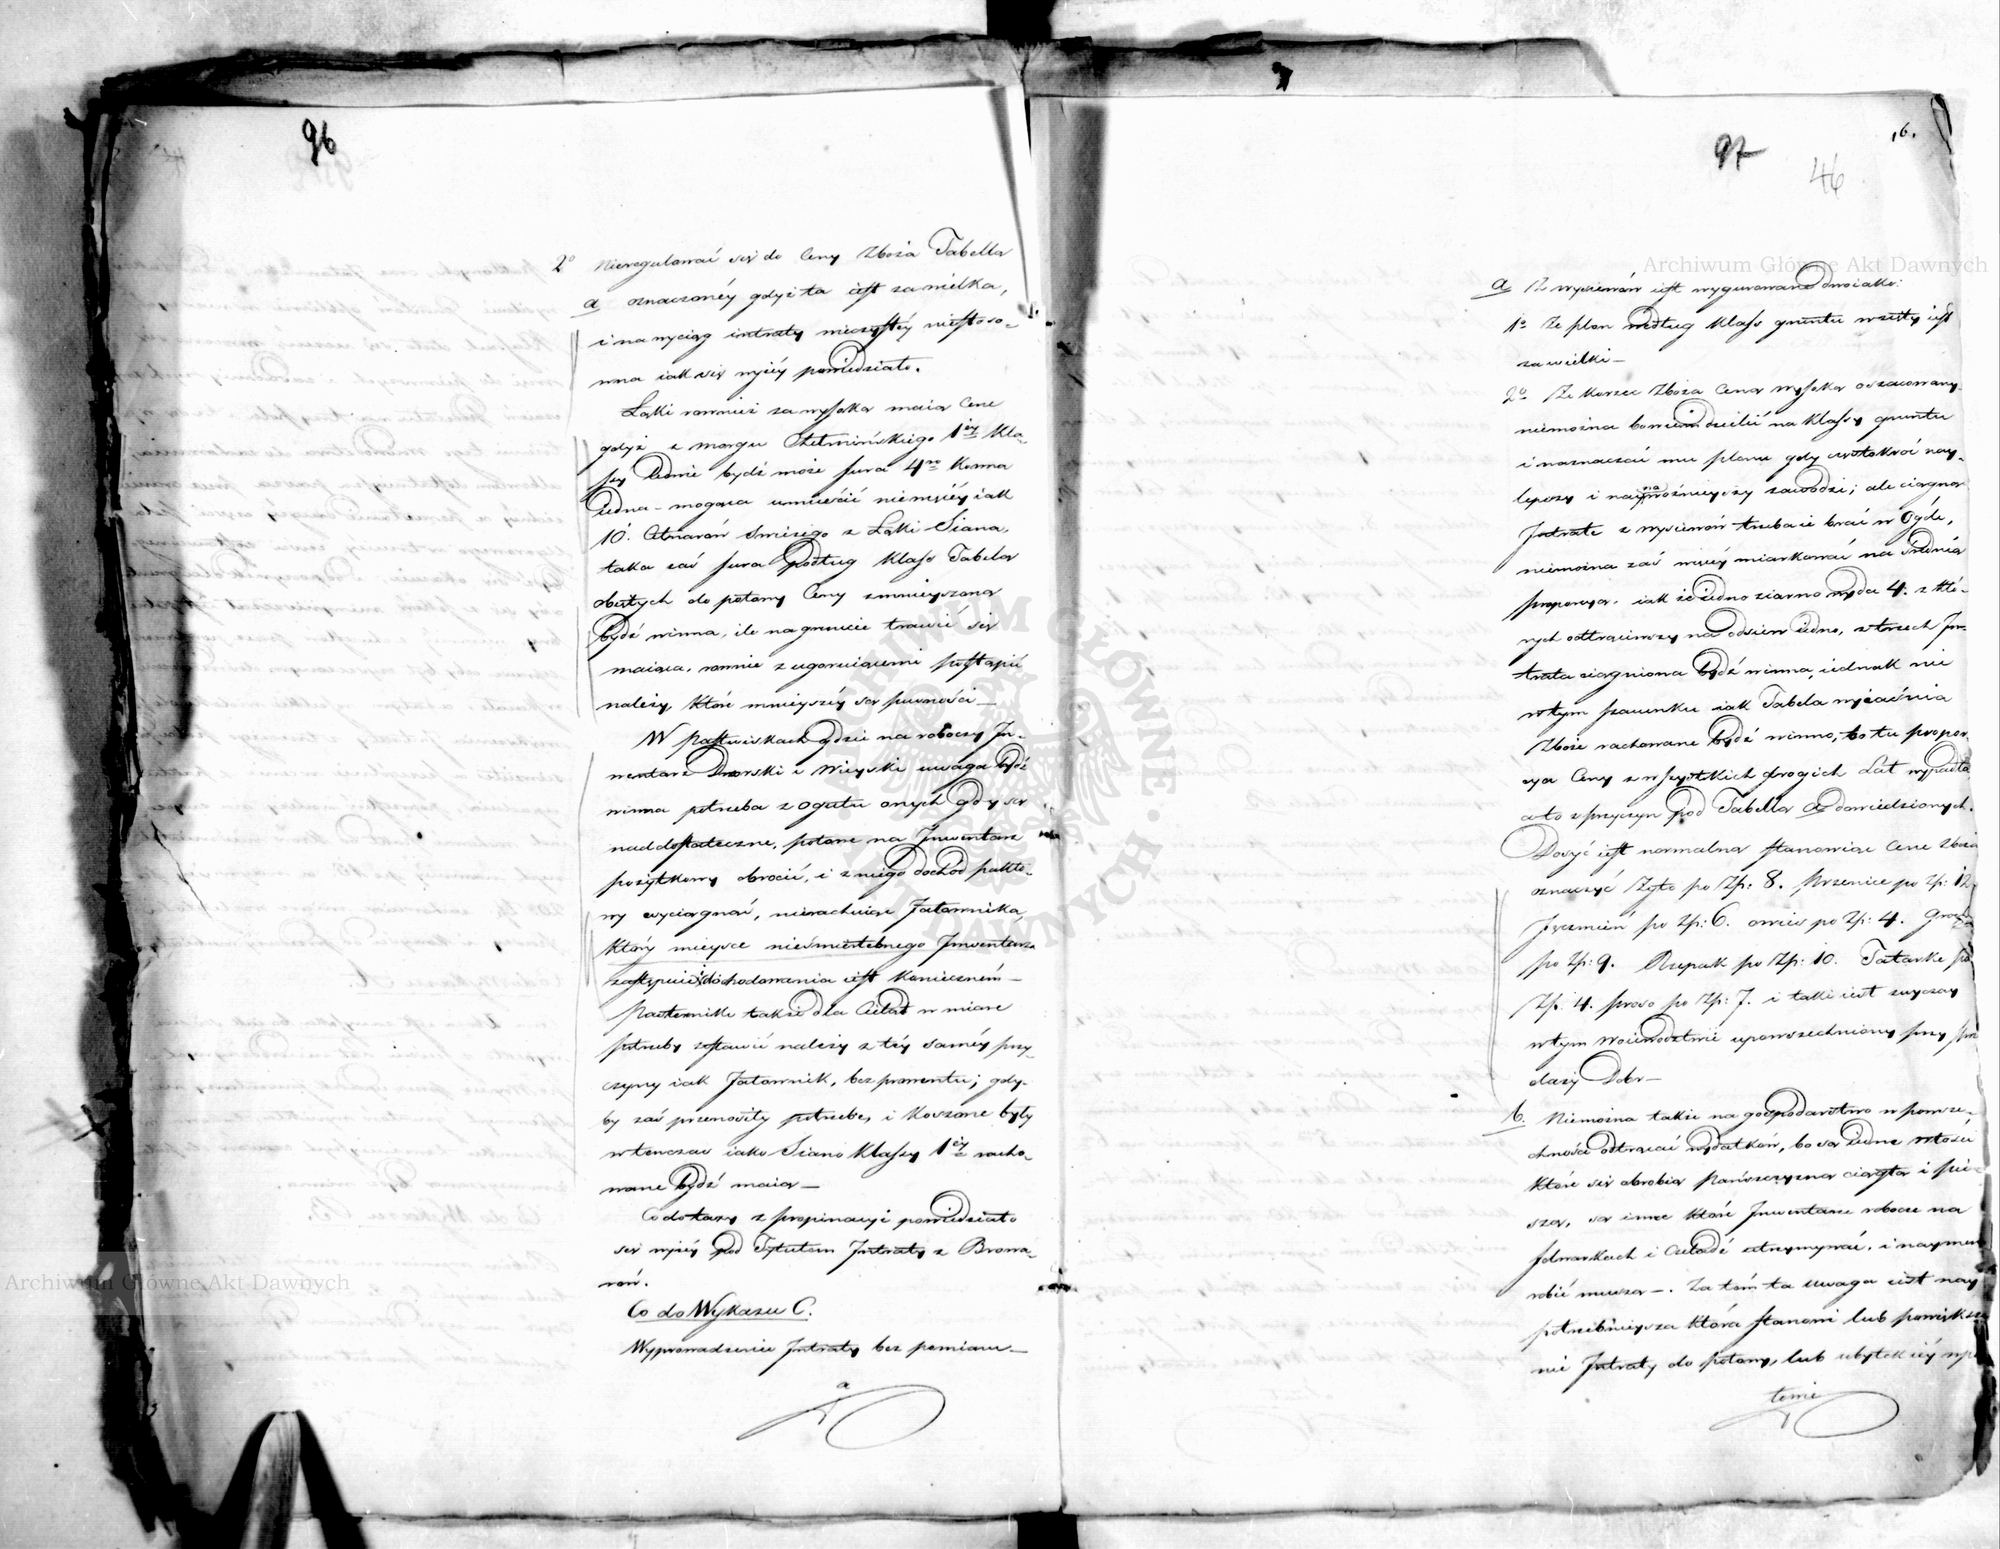 96
2º Nieregulować się do Ceny Zboża Tabella
a oznaczonéy gdyż ta iest zawielka,
i na wyciąg intraty nieczystéy niestoso-
wna iak się wyżéy powiedziało.
Łąki rownież za wysoką maią Cenę
gdyż z morgu Chełmińskiego 1éy Kla-
ssy ledwie bydź może fura 4ro Konna
iedna – mogąca umieścić niewięcéy iak
10. Cetnarów świeżego z Łąki Siana,
taka zaś fura podług Klass Tabelą
obiętych do połowy Ceny zmnieyszona
bydź winna, ile na gruncie trawić się
maiąca, rownie z ugorniącemi postąpić
należy, które mnieyszéy są pewności –
W pastwiskach gdzie na roboczy In-
wentarz Dworski i Wieyski uwaga bydź
winna potrzeba z ogułu onych gdy są
naddostateczne, połowę na Inwentarz
pożytkowy obrócić, i z niego dochód pakto-
wy wyciągnąć, nierachuiąc Jałownika,
który mieysce nieśmiertelnego Inwentarza
zastępuie i do chodowania iest koniecznem –
Pasternike także dla Cieląt w miarę
potrzeby zostawić należy z téy saméy przy-
czyny iak Jałownik, bez prowentu; gdy-
by zaś przenosiły potrzebę, i Koszone były
wtenczas iako Siano Klassy 1éy racho-
wane bydź maią –
Co do taxy z propinacyi powiedziało
się wyżéy pod Tytułem Intraty z Browa-
rów.
Co do Wykazu C.
Wyprowadzenie Intraty bez pomiaru –
a
97
46
16.
a. Z wysiewów iest wygurowane dwoiako:
1º Że plon według Klass gruntu wzięty iest
za wielki –
2º Że Korzec Zboża Ceną wysoką oszacowany
niemożna bowiem dzielić na Klassy gruntu
i naznaczać mu plonu gdy częstokroć nay-
lepszy i naymożnieyszy zawodzi; ale ciągnąc
Intratę z wysiewów trzeba ie brać w Ogóle,
niemożna zaś więcéy miarkować na średnią
proporcyą, iak że iedno ziarno wyda 4. z któ-
rych odtrąciwszy na odsiew iedno, z trzech In-
trata ciągniona bydź winna, iednak nie
w tym szacunku iak Tabela wyiaśnia
Zboże rachowane bydź winno, bo tu propor-
cya Ceny z wszystkich drogich Lat wypadła
a to z przyczyn pod Tabellą a dowiedzionych.
Dosyć iest normalną stanowiąc Cenę Zboża
oznaczyć Żyto po Zp: 8. Pszenice po Zp: 12
Jęczmień po Zp: 6. owies po Zp: 4. Groch
po Zp: 9. Rzepak po Zp: 10. Tatarkę po
Zp. 4. proso po Zp: 7. i taki iest zwyczay
w tym Woiewodztwie upowszechniony przy prze
daży Dobr –
b. Niemożna także na gospodarstwo w powsze-
chności odtrącać wydatków, bo są iedne włości
które się obrobią Pańszczyzną ciągłą i pie-
szą, są inne które Inwentarze robocze na
folwarkach i Czeladź utrzymywać, i naymem
robić muszą –. Zatém ta uwaga iest nay
potrzebnieysza która stanowi lub powiększe
nie Intraty do połowy, lub ubytek iéy w po
łowie